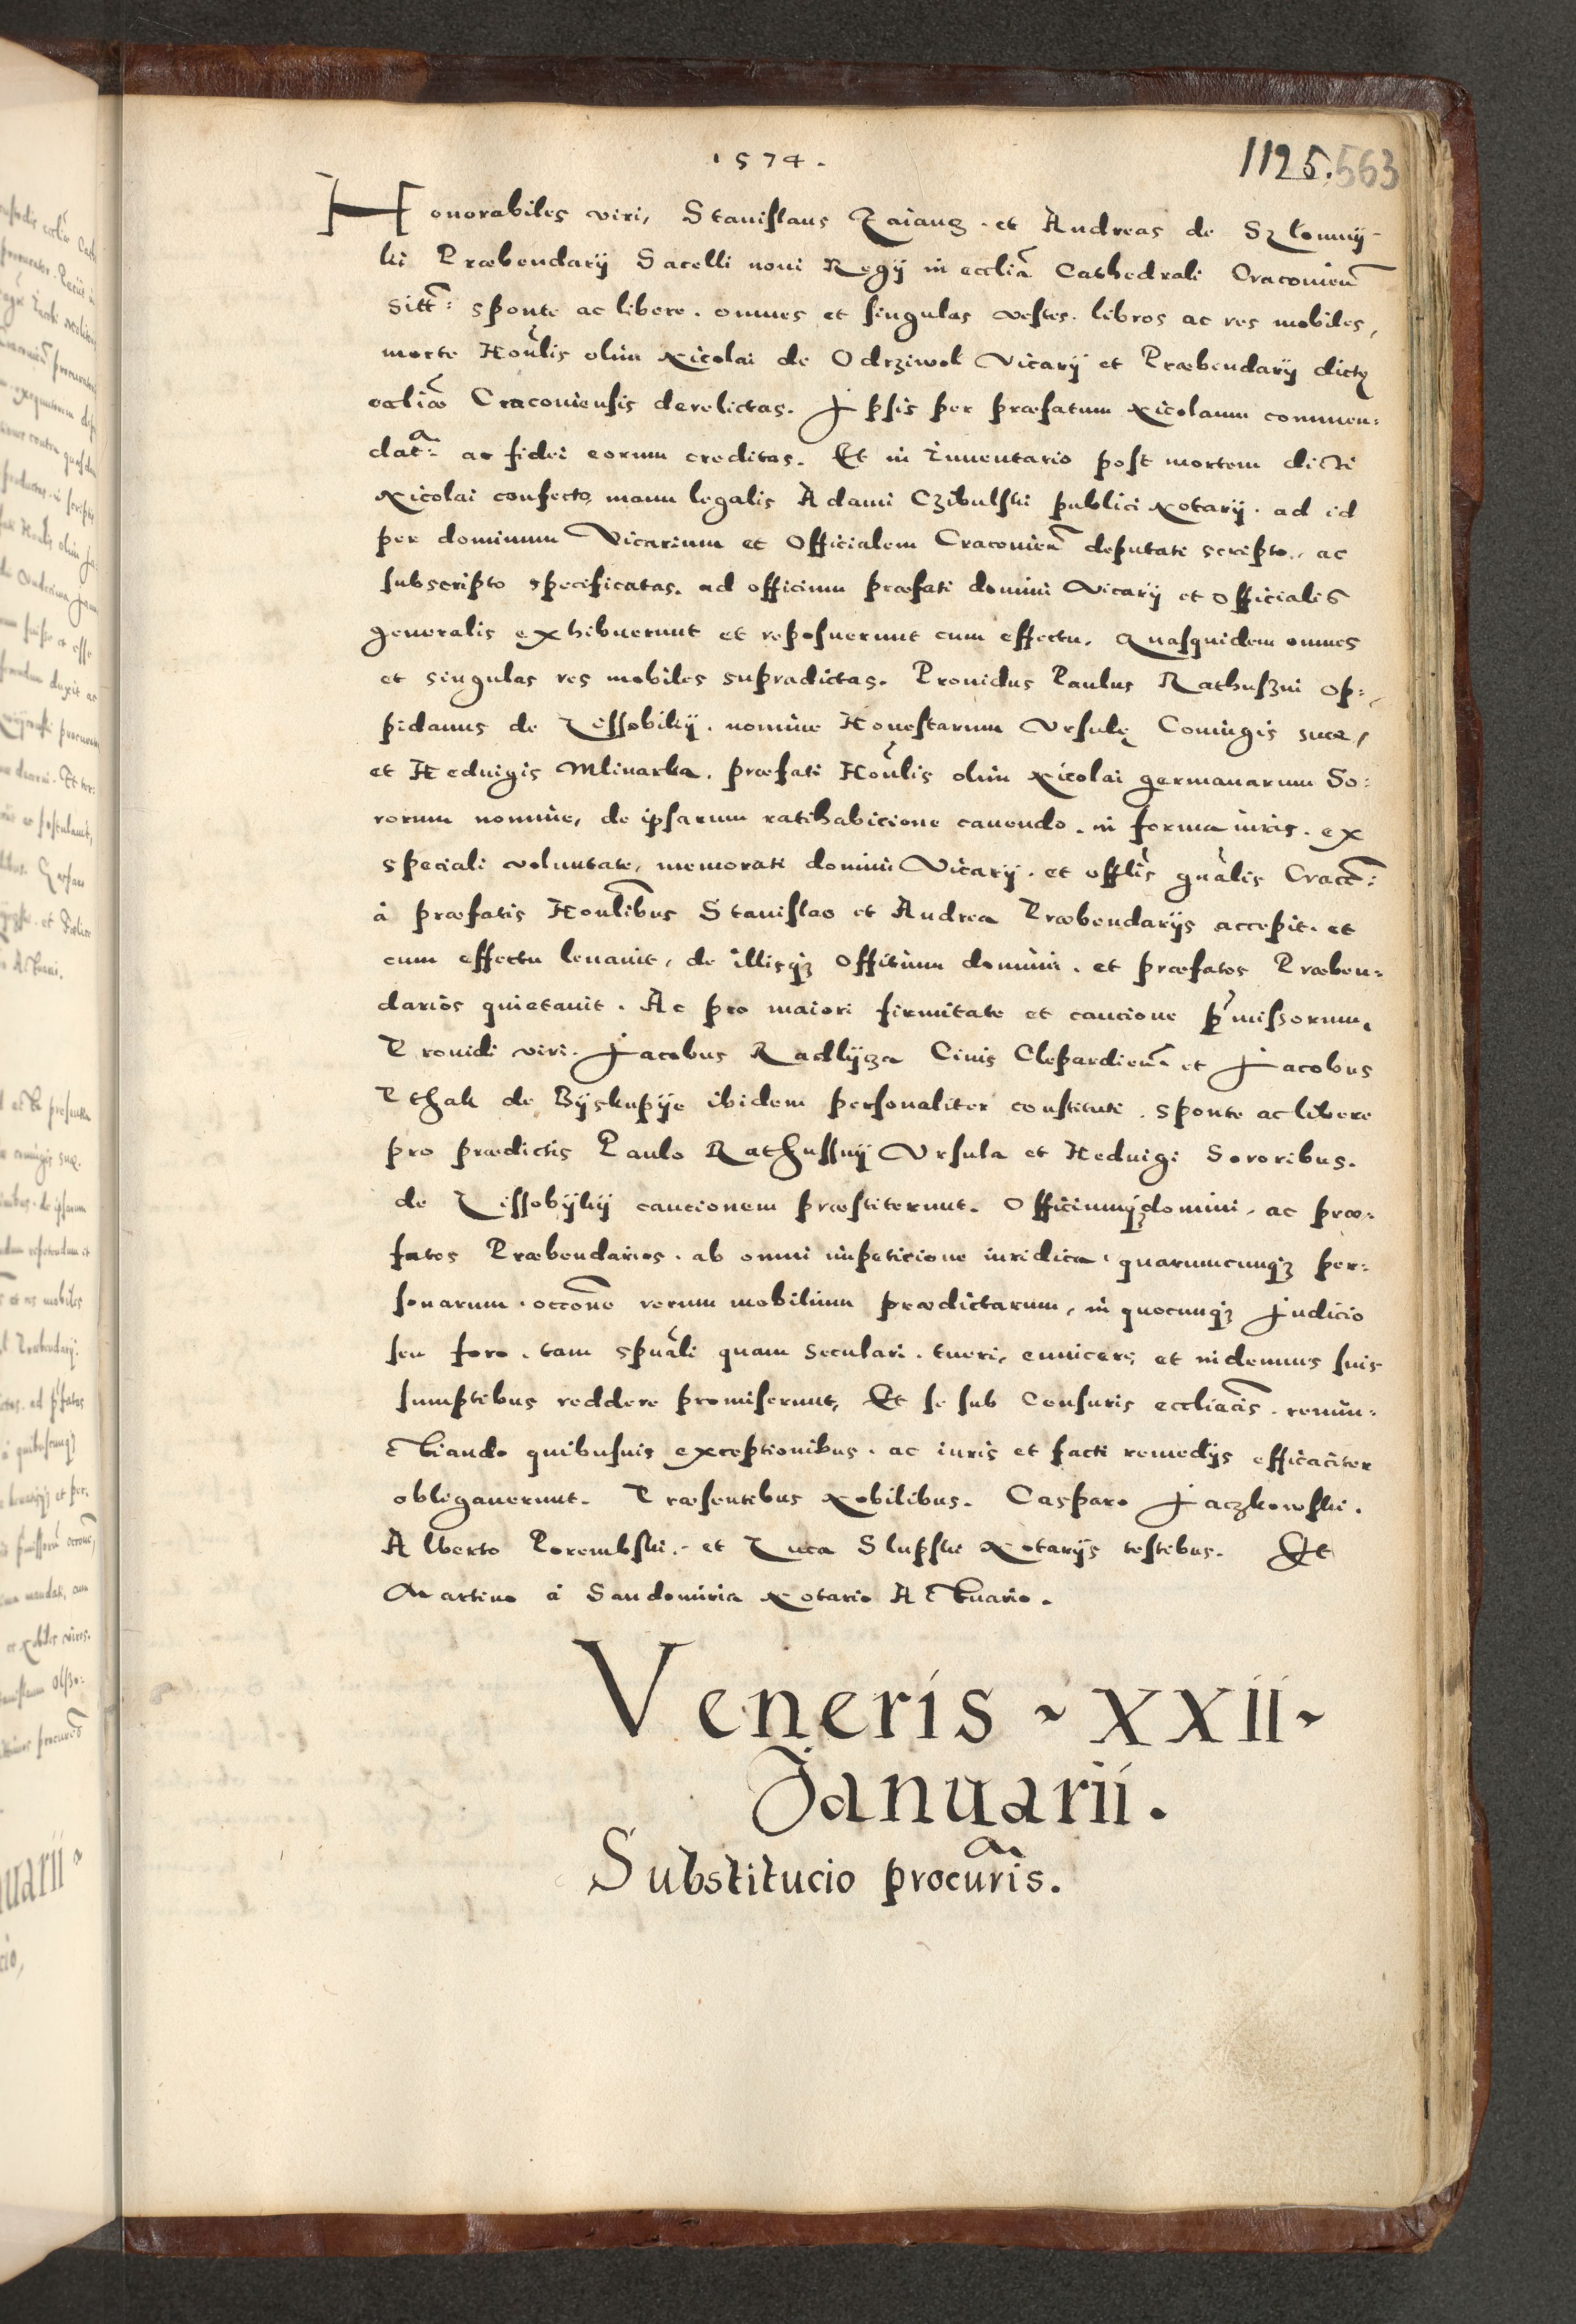 1574.
1125. 563
Honorabiles viri, Stanislaus Zaiancz. et Andreas de Szlomny-
ki Præbendarij Sacelli noui Regij in eccliã Cathedrali Cracovieñ
sitt: sponte ac libere. omnes et singulas vestes. libros ac res mobiles,
morte Honlis olim Nicolai de Odrziwol Vicarij et Præbendarij dictę
eccliæ Cracoviensis derelictas. Ipsis per præfatum Nicolaum commen:
dat: ac fidei eorum creditas. Et in Inuentario post mortem dicti
Nicolai confecto, manu legalis Adami Czibulski publici Notarij. ad id
per dominum Vicarium et Officialem Cracovieñ deputati scripto, ac
subscripto specificatas. ad officium præfati domini Vicarij et Officialis
generalis exhibuerunt et reposuerunt cum effectu, Quasquidem omnes
et singulas res mobiles supradictas. Prouidus Paulus Rathuszni op:
pidanus de Lissobikij. nomine Honestarum Vrsulę Coniugis suæ,
et Heduigis Mlinarka. præfati Honlis olim Nicolai germanarum So:
rorum nomine, de ipsarum ratihabicione cauendo. in forma iuris. ex
speciali voluntate, memorati domini Vicarij. et offlis gñalis Cracc:
à præfatis Honlibus Stanislao et Andrea Præbendarijs accepit. et
cum effectu leuauit, de illisq3 Offitium domini. et præfatos Præben:
darios quietauit. Ac pro maiori firmitate et caucione p̃missorum.
Prouidi viri. Jacobus Radlijcza Ciuis Clepardieñ et Jacobus
Pthak de Byskupije ibidem personaliter constituti. sponte ac libere
pro prædictis Paulo Rathussnij Vrsula et Heduigi Sororibus.
de Lissobijkij caucionem præstiterunt. Officiumq3 domini, ac præ:
fatos Præbendarios. ab omni impeticione iuridica. quarumcunq3 per:
sonarum. occone rerum mobilium prædictarum, in quocunq3 Judicio
seu foro. tam spũali quam seculari. tueri, euincere, et indemnes suis
sumptibus reddere promiserunt, Et se sub Censuris eccliacis. renun:
ctiando quibusuis exceptionibus. ac iuris et facti remedijs efficaciter
obligauerunt. Præsentibus Nobilibus. Casparo Jaczkowski.
Alberto Porembski. et Luca Slupski Notarijs testibus. Et
Martino à Sandomiria Notario Actuario.
Veneris ~ XXII ~
Januarii.
Substitucio procuris.